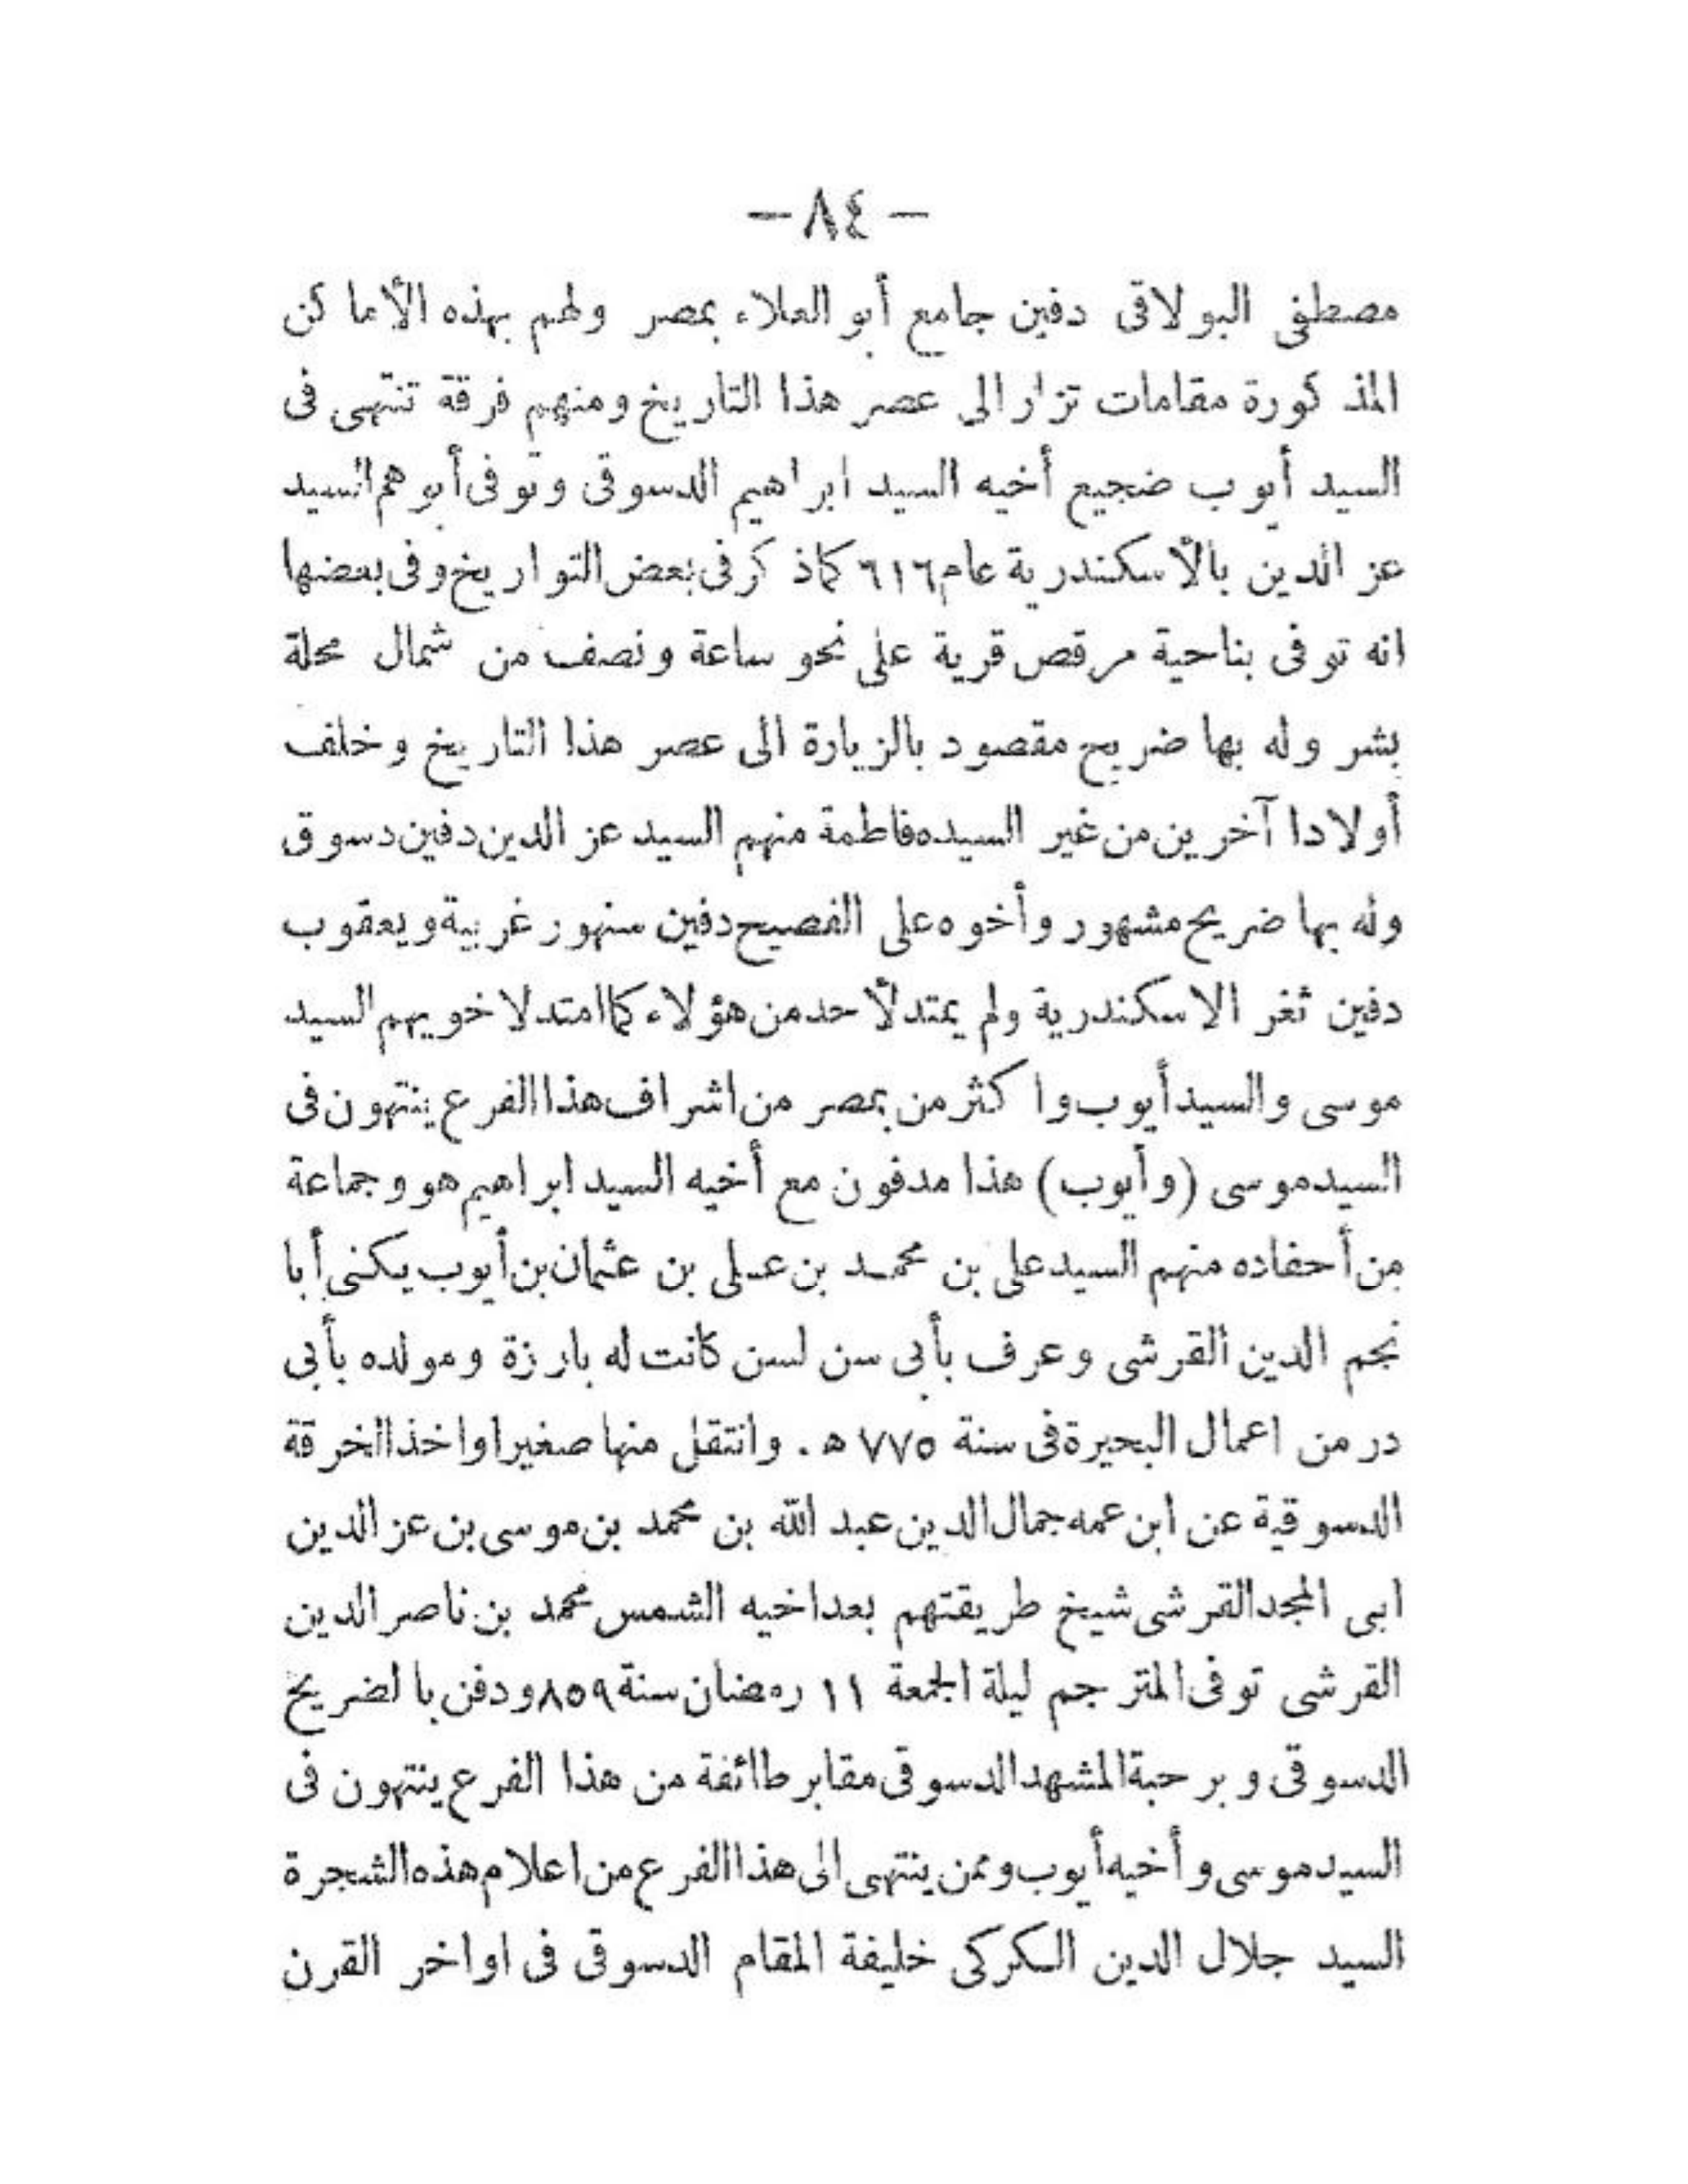 — ٨٤ —
مصطفى البولاقى دفين جامع أبو العلاء بمصر ولهم بهذه الأماكن
المذكورة مقامات تزار الى عصر هذا التاريخ ومنهم فرقة تنتهى فى
السيد أيوب ضجيع أخيه السيد ابراهيم الدسوقى وتوفى أبوهم السيد
عز الدين بالأسكندرية عام ٦١٦ كما ذكر فى بعض التواريخ وفى بعضها
انه توفى بناحية مرقص قرية على نحو ساعة ونصف من شمال محلة
بشر وله بها ضريح مقصود بالزيارة الى عصر هذا التاريخ وخلف
أولادا آخرين من غير السيده فاطمة منهم السيد عز الدين دفين دسوق
وله بها ضريح مشهور وأخوه على الفصيح دفين سنهور غربية ويعقوب
دفين ثغر الاسكندرية ولم يمتد لأحد من هؤلاء كما امتد لاخويهم السيد
موسى والسيد أيوب واكثر من بمصر من اشراف هذا الفرع ينتهون فى
السيد موسى (وأيوب) هذا مدفون مع أخيه السيد ابراهيم هو وجماعة
من أحفاده منهم السيد على بن محمد بن عـلى بن عثمان بن أيوب يكنى أبا
نجم الدين القرشى وعرف بأبى سن لسن كانت له بارزة ومولده بأبى
در من اعمال البحيرة فى سنة ٧٧٥ ه . وانتقل منها صغيرا واخذ الخرقة
الدسوقية عن ابن عمه جمال الدين عبد الله بن محمد بن موسى بن عز الدين
ابى المجد القرشى شيخ طريقتهم بعد اخيه الشمس محمد بن ناصر الدين
القرشى توفى المترجم ليلة الجمعة ١١ رمضان سنة ٨٥٩ ودفن بالضريح
الدسوقى وبرحبة المشهد الدسوقى مقابر طائفة من هذا الفرع ينتهون فى
السيد موسى وأخيه أيوب وممن ينتهى الى هذا الفرع من اعلام هذه الشجرة
السيد جلال الدين الكركى خليفة المقام الدسوقى فى اواخر القرن